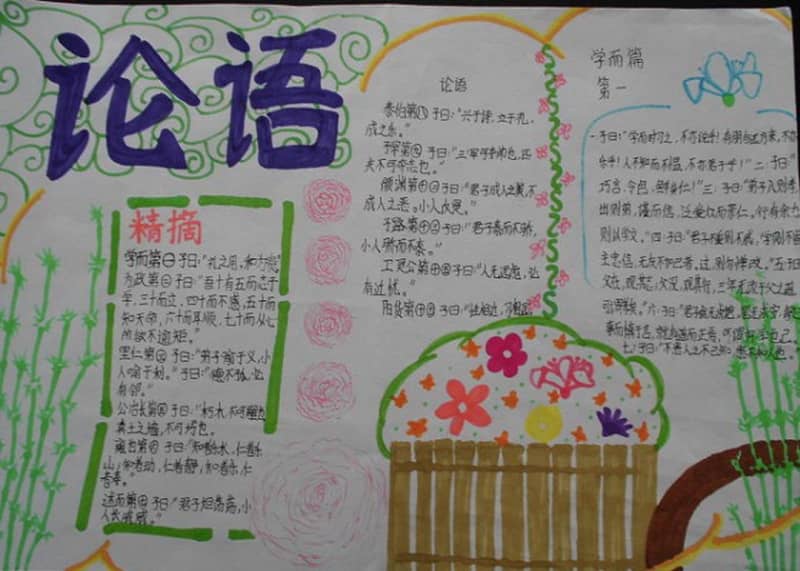 论语
精摘
学而第一 子曰:"礼之用,和为贵
为政第二 子曰:"吾十有五而志于
学,三十而立,四十而不惑,五十而
知天命,六十而耳顺,七十而从心
所欲不逾矩。"
里仁第四 子曰:"君子喻于义,小
人喻于利。"子曰:"德不孤,必
有邻。"
公冶长第五 子曰:"朽木不可雕也
粪土之墙,不可杇也。
雍也第六 子曰:"知者乐水,仁者乐
山;知者动,仁者静,知者乐,仁
者寿。"
述而第七 子曰:"君子坦荡荡,小
人长戚戚。"
论语
泰伯第八 子曰:"兴于诗,立于礼,
成之乐。"
子罕第九 子曰:"三军可夺帅也,匹
夫不可夺志也。"
颜渊第十二 子曰:"君子成人之美,不
成人之恶。小人反是。
子路第十三 子曰:"君子泰而不骄,
小人骄而不泰。"
子曰:"人无远虑,必
有近忧。"
阳货第十七 子曰:"性相近,习相远
学而篇
第一
一·子曰:"学而时习之,不亦说乎!有朋自远方来,不亦
乐乎!人不知而不愠,不亦君子乎!"二·子曰:"
巧言,令色,鲜矣仁!"三·子曰:"弟子入则孝,
出则弟,谨而信,泛爱众而亲仁。行有余力,
则以学文。"四·子曰:"君子不重则不威,学则不固,
主忠信,无友不如己者。过,则勿惮改。"五子曰
父在,观其志;父没,观其行,三年无改于父之道
六·子曰:"君子食无求饱,居无求安,敏
事而慎于言,就有道而正焉,可谓好学也已。
七·子曰:"不患人之不己知,患不知人也。